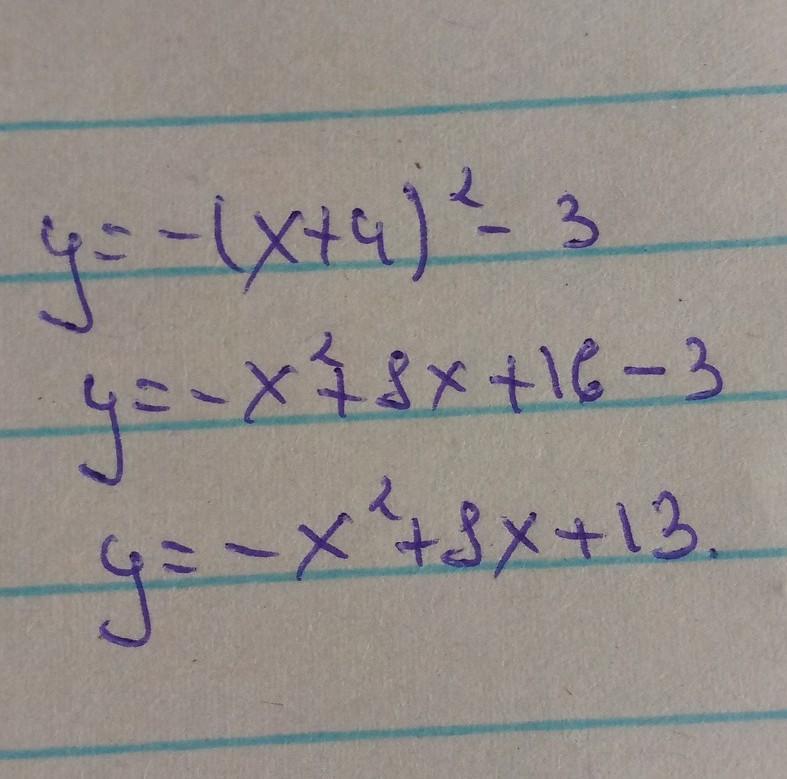 y=-(x+4)²-3
y=-x²+8x+16-3
y=-x²+8x+13.